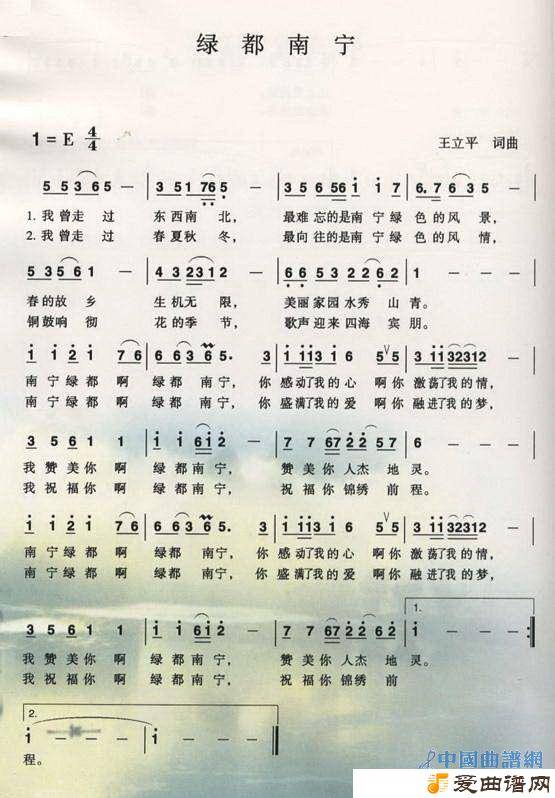 绿都南宁
1=E 4/4 王立平 词曲
5 5 3 6 5 — | 3 5 1 7 6 5 — | 3 5 6 5 6 1 7 6 | 6. 7 6 3 — |
1. 我曾走过 东西南北, 最难忘的是南宁绿色的风景,
2. 我曾走过 春夏秋冬, 最向往的是南宁绿色的风情,
5 3 5 6 1 — | 4 3 2 3 1 2 — | 6 6 5 3 2 2 6 2 | 1 — — — |
春的故乡 生机无限, 美丽家园水秀山青。
铜鼓响彻 花的季节, 歌声迎来四海宾朋。
南宁绿都啊 绿都南宁, 你感动了我的心 啊你激荡了我的情,
南宁绿都啊 绿都南宁, 你盛满了我的爱 啊你融进了我的梦,
3 5 6 5 1 1 | 1 1 6 1 2 — | 7 7 6 7 2 2 5 7 | 6 — — — |
我赞美你啊 绿都南宁, 赞美你人杰地灵。
我祝福你啊 绿都南宁, 祝福你锦绣前程。
南宁绿都啊 绿都南宁, 你感动了我的心 啊你激荡了我的情,
南宁绿都啊 绿都南宁, 你盛满了我的爱 啊你融进了我的梦,
1.
3 5 6 5 1 1 | 1 1 6 1 2 — | 7 7 6 7 2 2 6 7 | 1 — — — :|
我赞美你啊 绿都南宁, 赞美你人杰地灵。
我祝福你啊 绿都南宁, 祝福你锦绣前
2.
1 — — — | 1 — — — ‖
程。
中國曲譜網
爱曲谱网